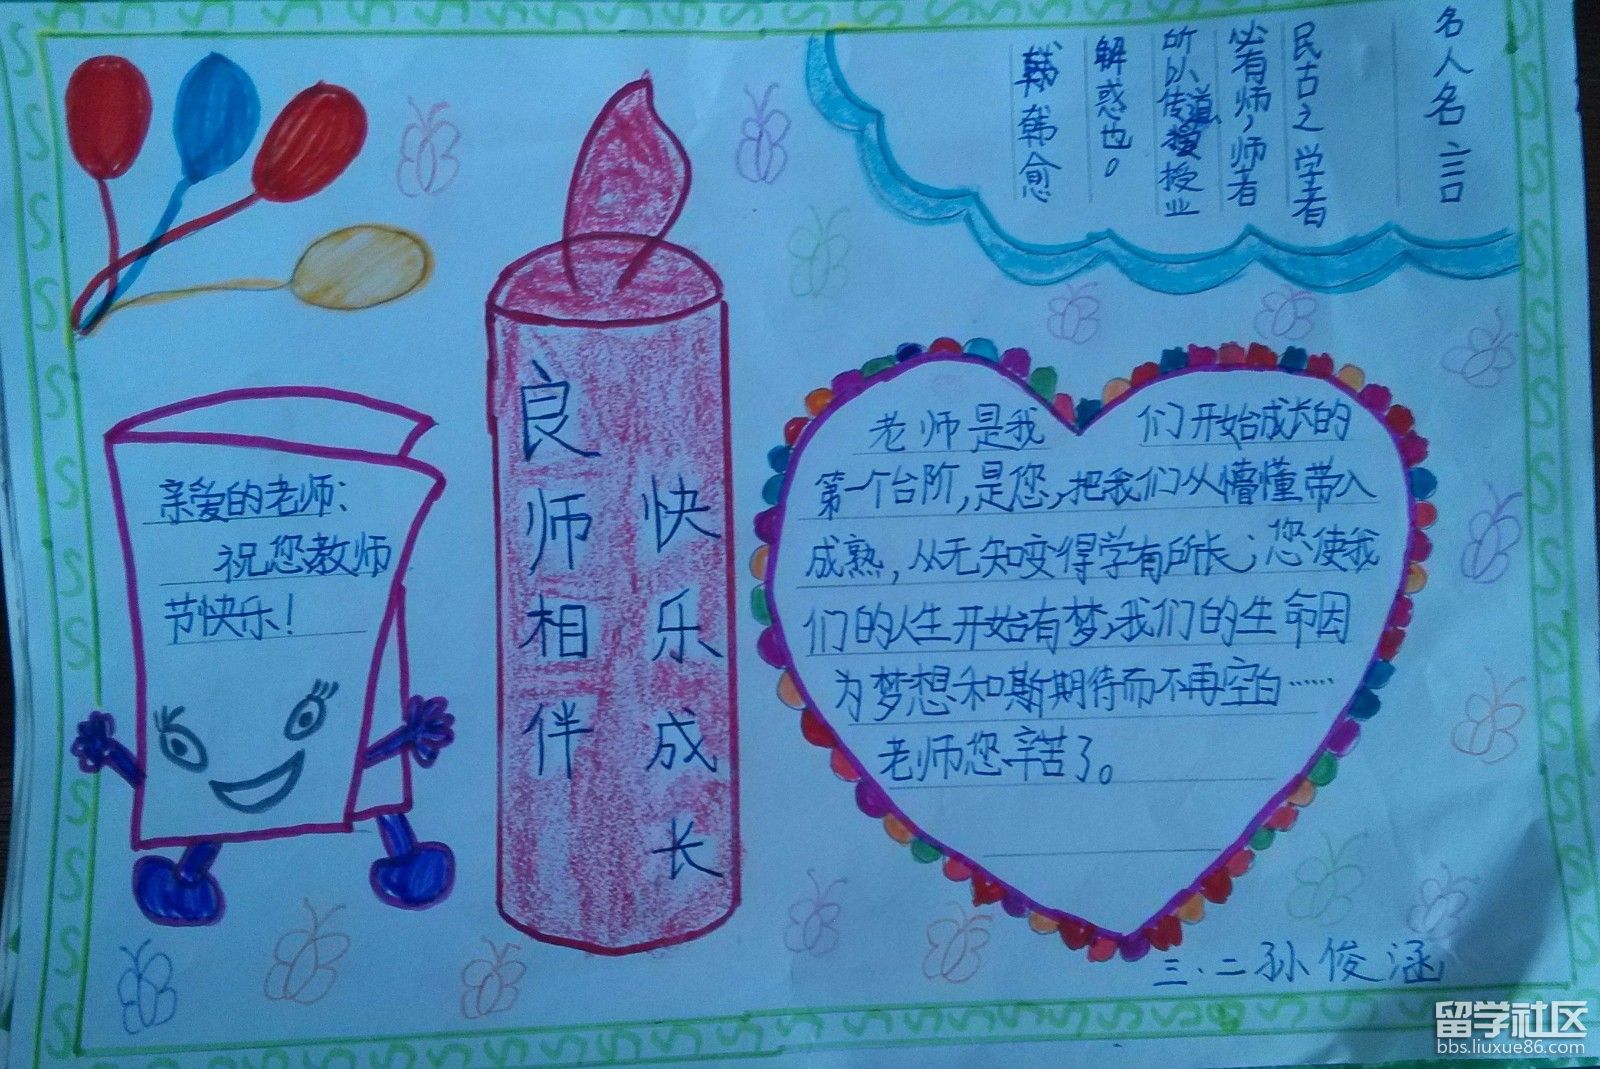 名人名言
民古之学者
必有师，师者
所以传道授业
解惑也。
韩愈
亲爱的老师：
祝您教师
节快乐！
良师相伴
快乐成长
老师是我们开始成长的
第一个台阶，是您，把我们从懵懂带入
成熟，从无知变得学有所长；您使我
们的人生开始有梦，我们的生命因
为梦想和期待而不再空白……
老师您辛苦了。
三.二孙俊涵
留学社区
bbs.liuxue86.com